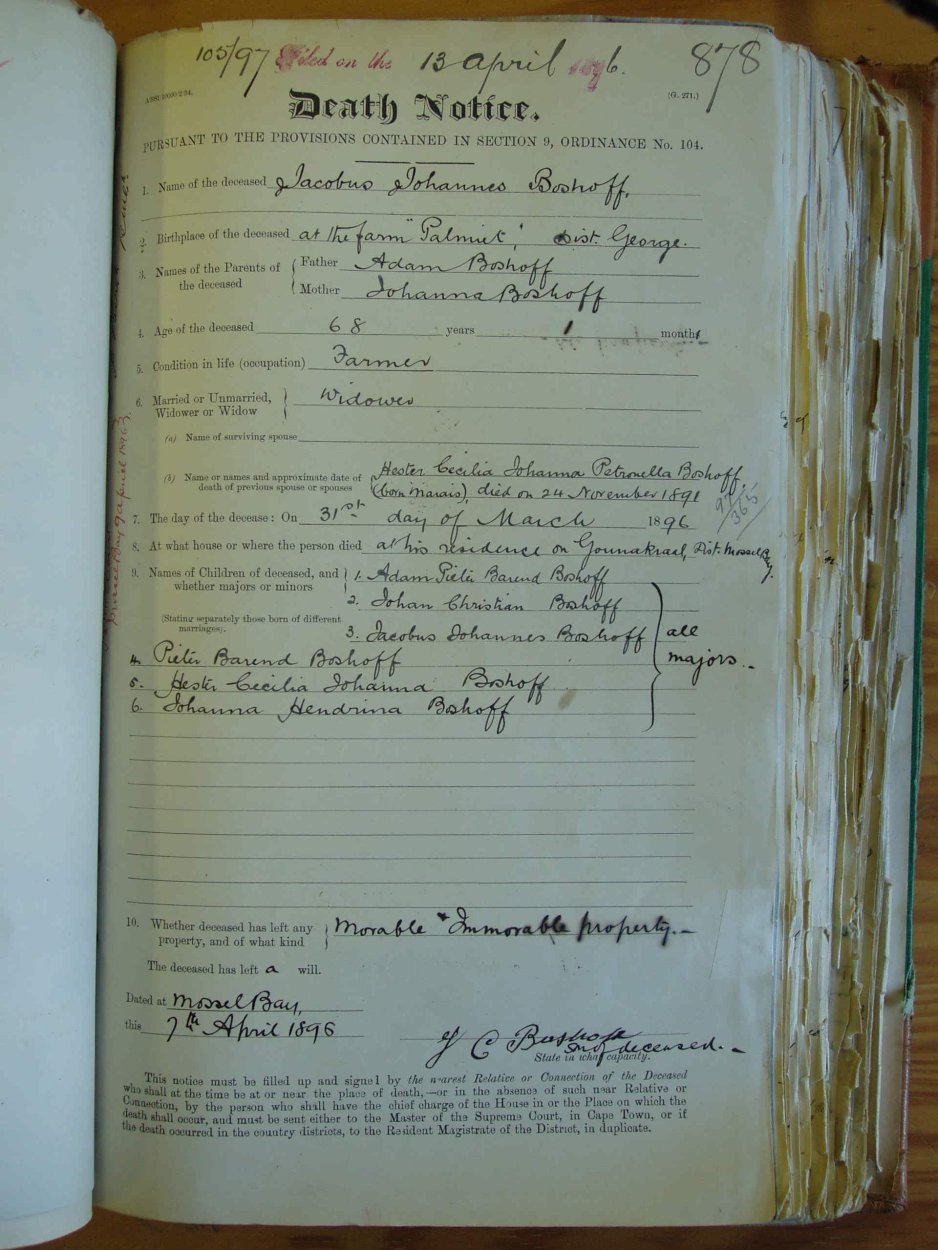 105/97 Filed on the 13 April 1896. 878
(G. 271.)
Death Notice.
PURSUANT TO THE PROVISIONS CONTAINED IN SECTION 9, ORDINANCE No. 104.
1. Name of the deceased Jacobus Johannes Boshoff.
2. Birthplace of the deceased at the farm "Palmiet", Dist. George.
3. Names of the Parents of the deceased { Father Adam Boshoff
Mother Johanna Boshoff
4. Age of the deceased 68 years 1 month
5. Condition in life (occupation) Farmer
6. Married or Unmarried, Widower or Widow } Widower
(a) Name of surviving spouse
(b) Name or names and approximate date of death of previous spouse or spouses Hester Cecilia Johanna Petronella Boshoff
(born Marais), died on 24 November 1891
97/365
7. The day of the decease: On 31st day of March 1896
8. At what house or where the person died at his residence on Gounakraal, Dist. Mossel Bay.
9. Names of Children of deceased, and whether majors or minors } 1. Adam Pieter Barend Boshoff
2. Johan Christian Boshoff
(Stating separately those born of different marriages).
3. Jacobus Johannes Boshoff } all majors.-
4. Pieter Barend Boshoff
5. Hester Cecilia Johanna Boshoff
6. Johanna Hendrina Boshoff
10. Whether deceased has left any property, and of what kind } Movable & Immovable property.-
The deceased has left a will.
Dated at Mossel Bay,
this 7th April 1896
J C Boshoff
son of deceased.-
State in what capacity.
This notice must be filled up and signed by the nearest Relative or Connection of the Deceased
who shall at the time be at or near the place of death,—or in the absence of such near Relative or
Connection, by the person who shall have the chief charge of the House in or the Place on which the
death shall occur, and must be sent either to the Master of the Supreme Court, in Cape Town, or if
the death occurred in the country districts, to the Resident Magistrate of the District, in duplicate.
Mossel Bay 9 April 1896